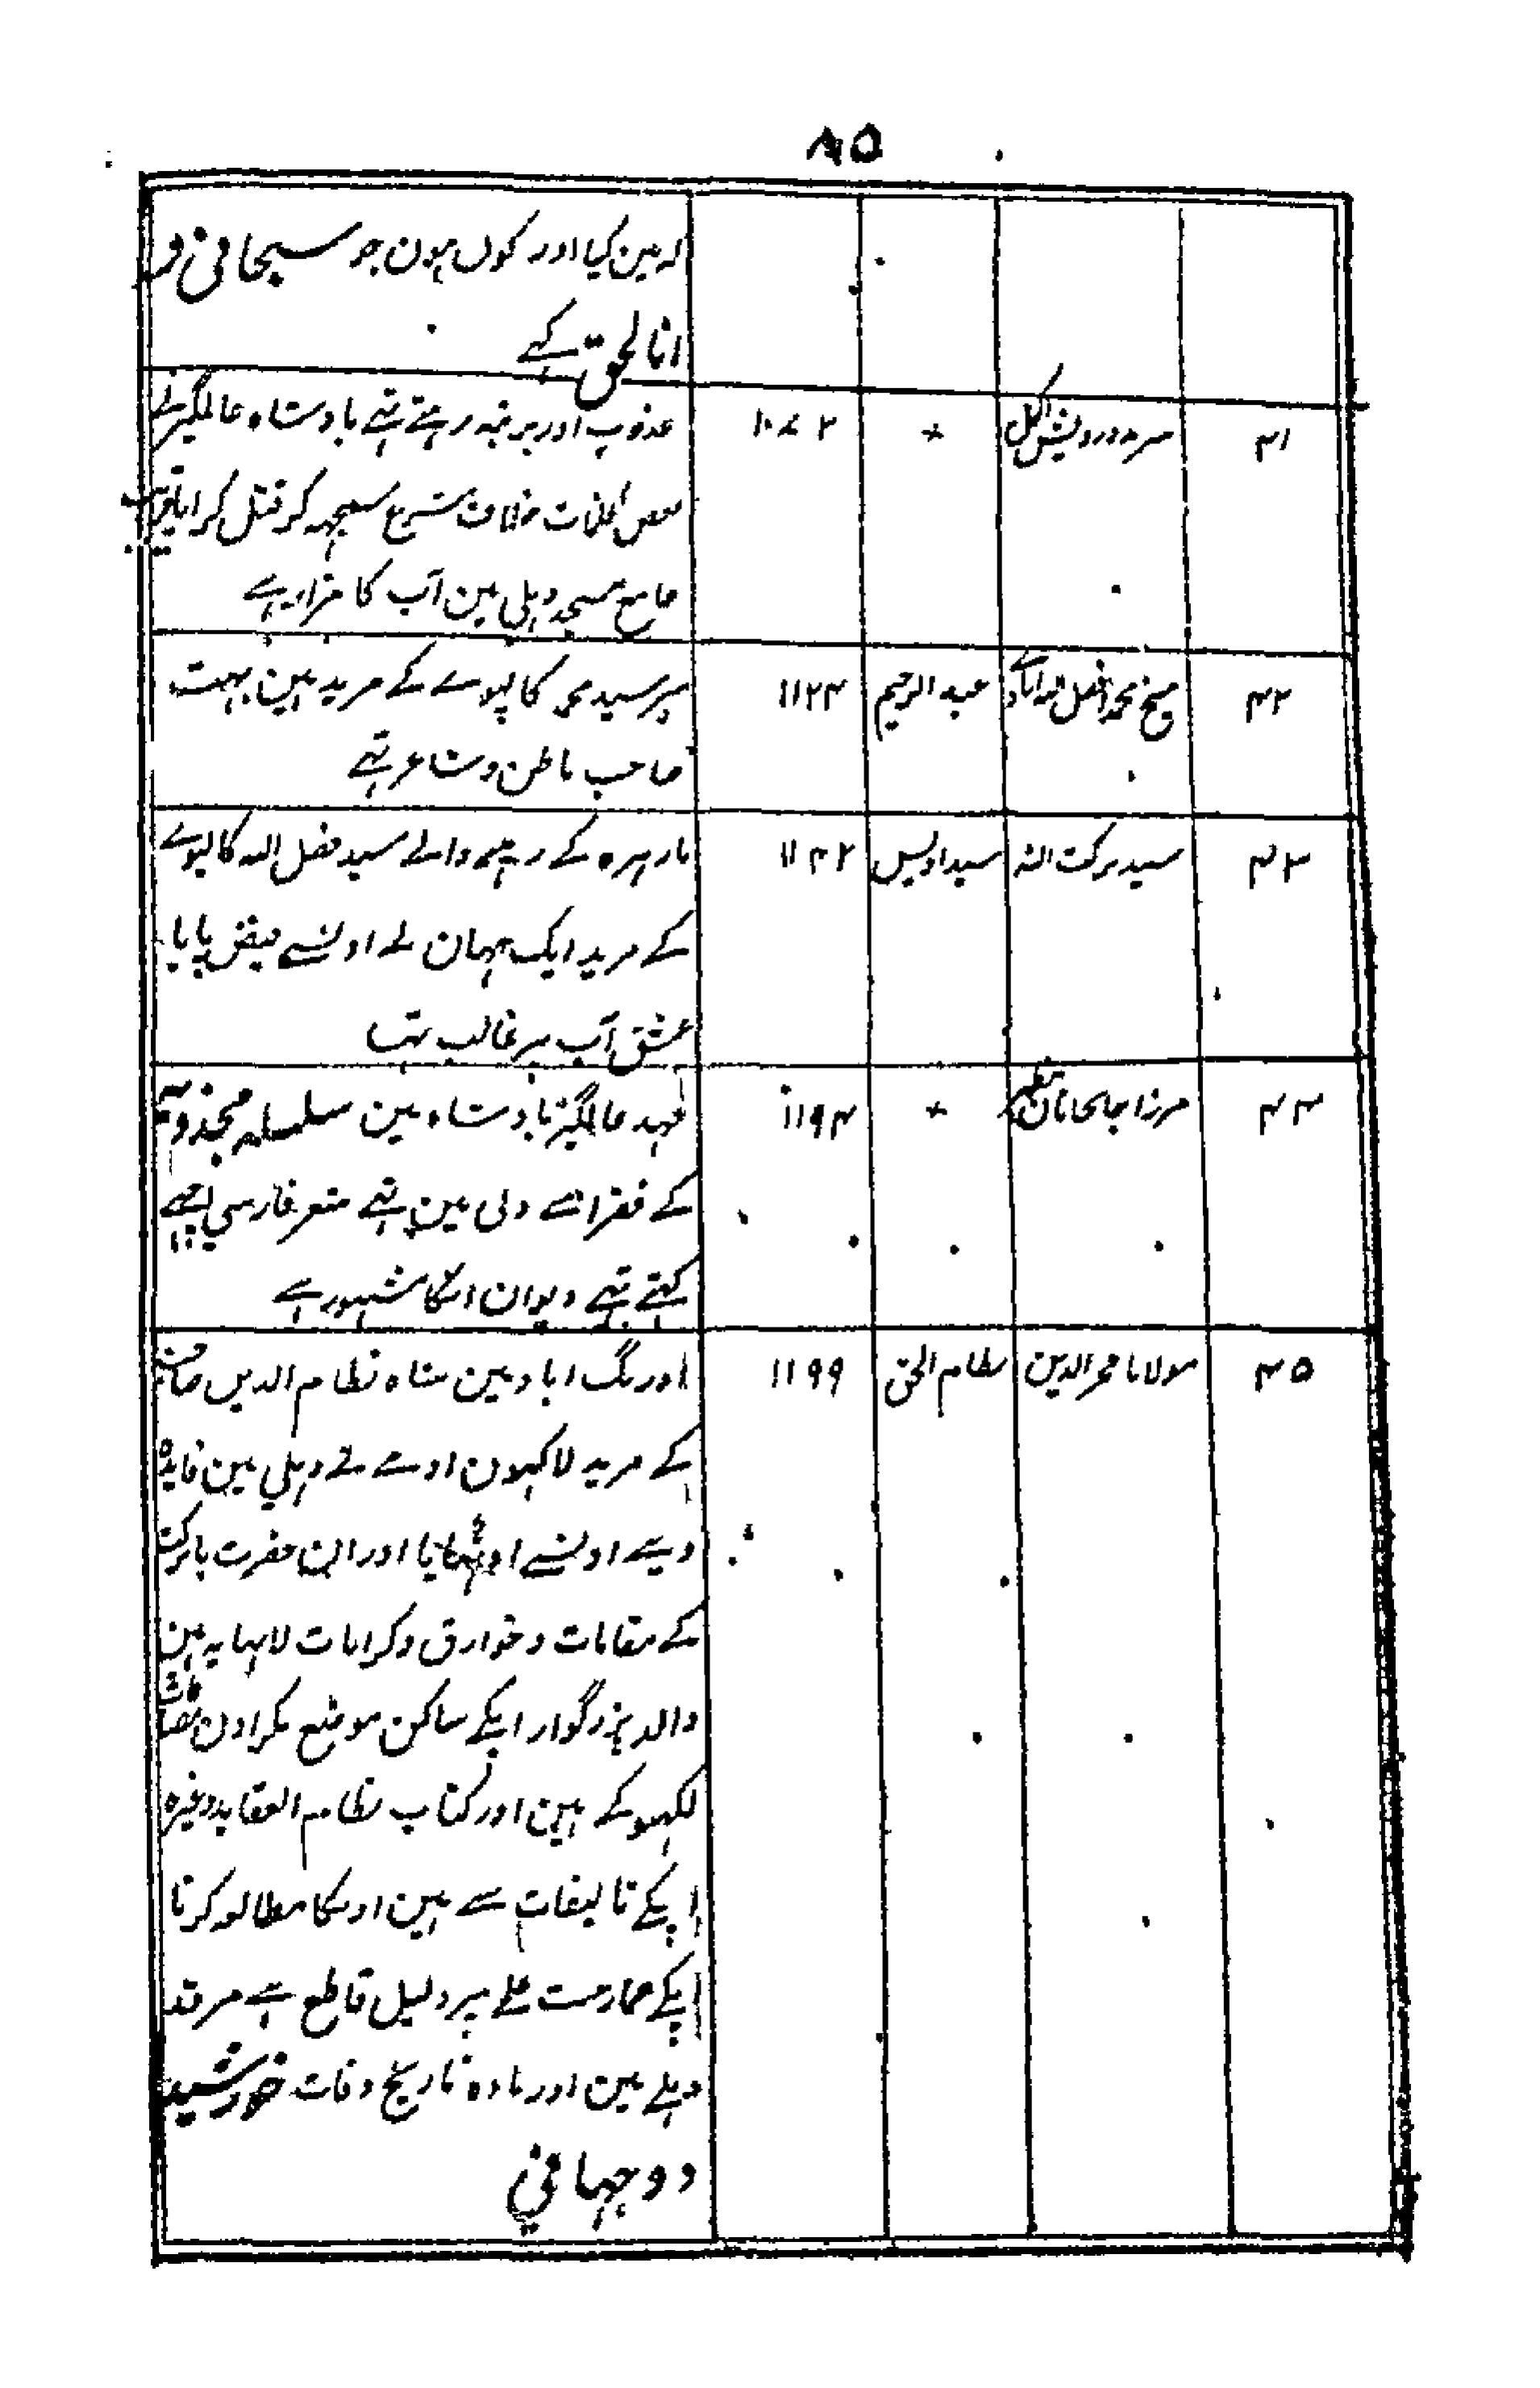 ۸۵
کہ مین کیا اور کون ہون جو سبحانی و
انا لحق کہے
۴۱ سرمد درویش اکمل + ۱۰۷۲ مجذوب اور برہنہ رہتے تہے بادشاہ عالمگیر نے
بعض کلمات خلاف شرع سمجہہ کر قتل کرایا قریب
جامع مسجد دہلی مین آپ کا مزار ہے
۴۲ شیخ محمد افضل الہ ابادے عبد الرحیم ۱۱۲۴ میر سید محمد کالپوے کے مرید ہین بہت
صاحب باطن و شاعر تہے
۴۳ سید برکت اللہ سید اویس ۱۱۴۲ مارہرہ کے رہنے والے سید فضل اللہ کالپوے
کے مرید ایک جہان نے اونسے فیض پایا
عشق آپ پر غالب تہا
۴۴ مرزا جانجانان مظہر + ۱۱۹۴ عہد عالمگیر بادشاہ مین سلسلہ مجددیہ
کے فقرا سے دلی مین تہے شعر فارسی اچہے
کہتے تہے دیوان انکا مشہور ہے
۴۵ مولانا فخر الدین نظام الحق ۱۱۹۹ اورنگ اباد مین شاہ نظام الدین صاحب
کے مرید لاکہون ادمے نے دہلی مین فایدہ
دینے اونسے اوٹہایا اور ان حضرت بابرکت
کے مقامات و خوارق و کرامات لانہایہ ہین
والد بزرگوار اپکے ساکن موضع نکراون مضافات
لکہنو کے ہین اور کتاب نظام العقاید وغیرہ
اپکے تالیفات سے ہین اوسکا مطالعہ کرنا
اپکے ممارست علمے پر دلیل قاطع ہے مرقد
دہلے مین اور مادہ تاریخ وفات خورشید
دو جہانی